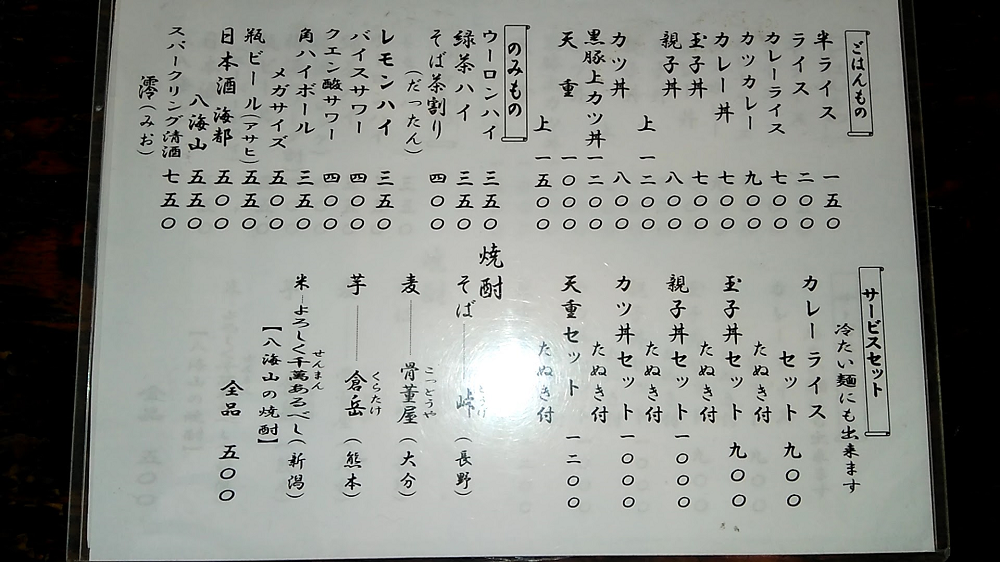 ごはんもの
半ライス 一五〇
ライス 二〇〇
カレーライス 七〇〇
カツカレー 九〇〇
カレー丼 七〇〇
玉子丼 七〇〇
親子丼 八〇〇
上 一二〇〇
カツ丼 八〇〇
黒豚上カツ丼 一二〇〇
天重 一〇〇〇
上 一五〇〇
のみもの
ウーロンハイ 三五〇
緑茶ハイ 三五〇
そば茶割り 四〇〇
(だったん)
レモンハイ 三五〇
バイスサワー 四〇〇
クエン酸サワー 四〇〇
角ハイボール 三五〇
メガサイズ 五〇〇
瓶ビール(アサヒ) 五五〇
日本酒 海都 五〇〇
八海山 五五〇
スパークリング清酒 七五〇
澪(みお)
サービスセット
冷たい麺にも出来ます
カレーライス
セット 九〇〇
たぬき付
玉子丼セット 九〇〇
たぬき付
親子丼セット 一〇〇〇
たぬき付
カツ丼セット 一〇〇〇
たぬき付
天重セット 一二〇〇
たぬき付
焼酎
そば 峠(長野)
麦 骨董屋(大分)
こっとうや
芋 倉岳(熊本)
くらたけ
米 よろしく千萬あるべし(新潟)
せんまん
【八海山の焼酎】
全品 五〇〇